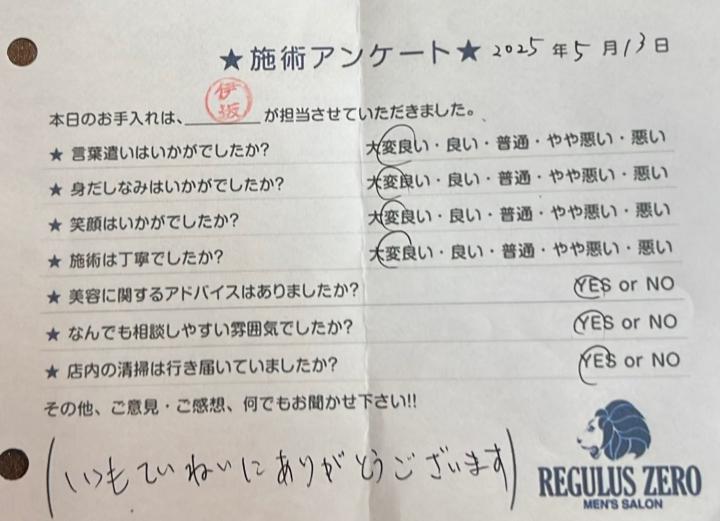 ★施術アンケート★ 2025年5月13日
本日のお手入れは、伊坂が担当させていただきました。
★ 言葉遣いはいかがでしたか? 大変良い・良い・普通・やや悪い・悪い
★ 身だしなみはいかがでしたか? 大変良い・良い・普通・やや悪い・悪い
★ 笑顔はいかがでしたか? 大変良い・良い・普通・やや悪い・悪い
★ 施術は丁寧でしたか? 大変良い・良い・普通・やや悪い・悪い
★ 美容に関するアドバイスはありましたか? YES or NO
★ なんでも相談しやすい雰囲気でしたか? YES or NO
★ 店内の清掃は行き届いていましたか? YES or NO
その他、ご意見・ご感想、何でもお聞かせ下さい!!
(いつもていねいにありがとうございます)
REGULUS ZERO
MEN'S SALON